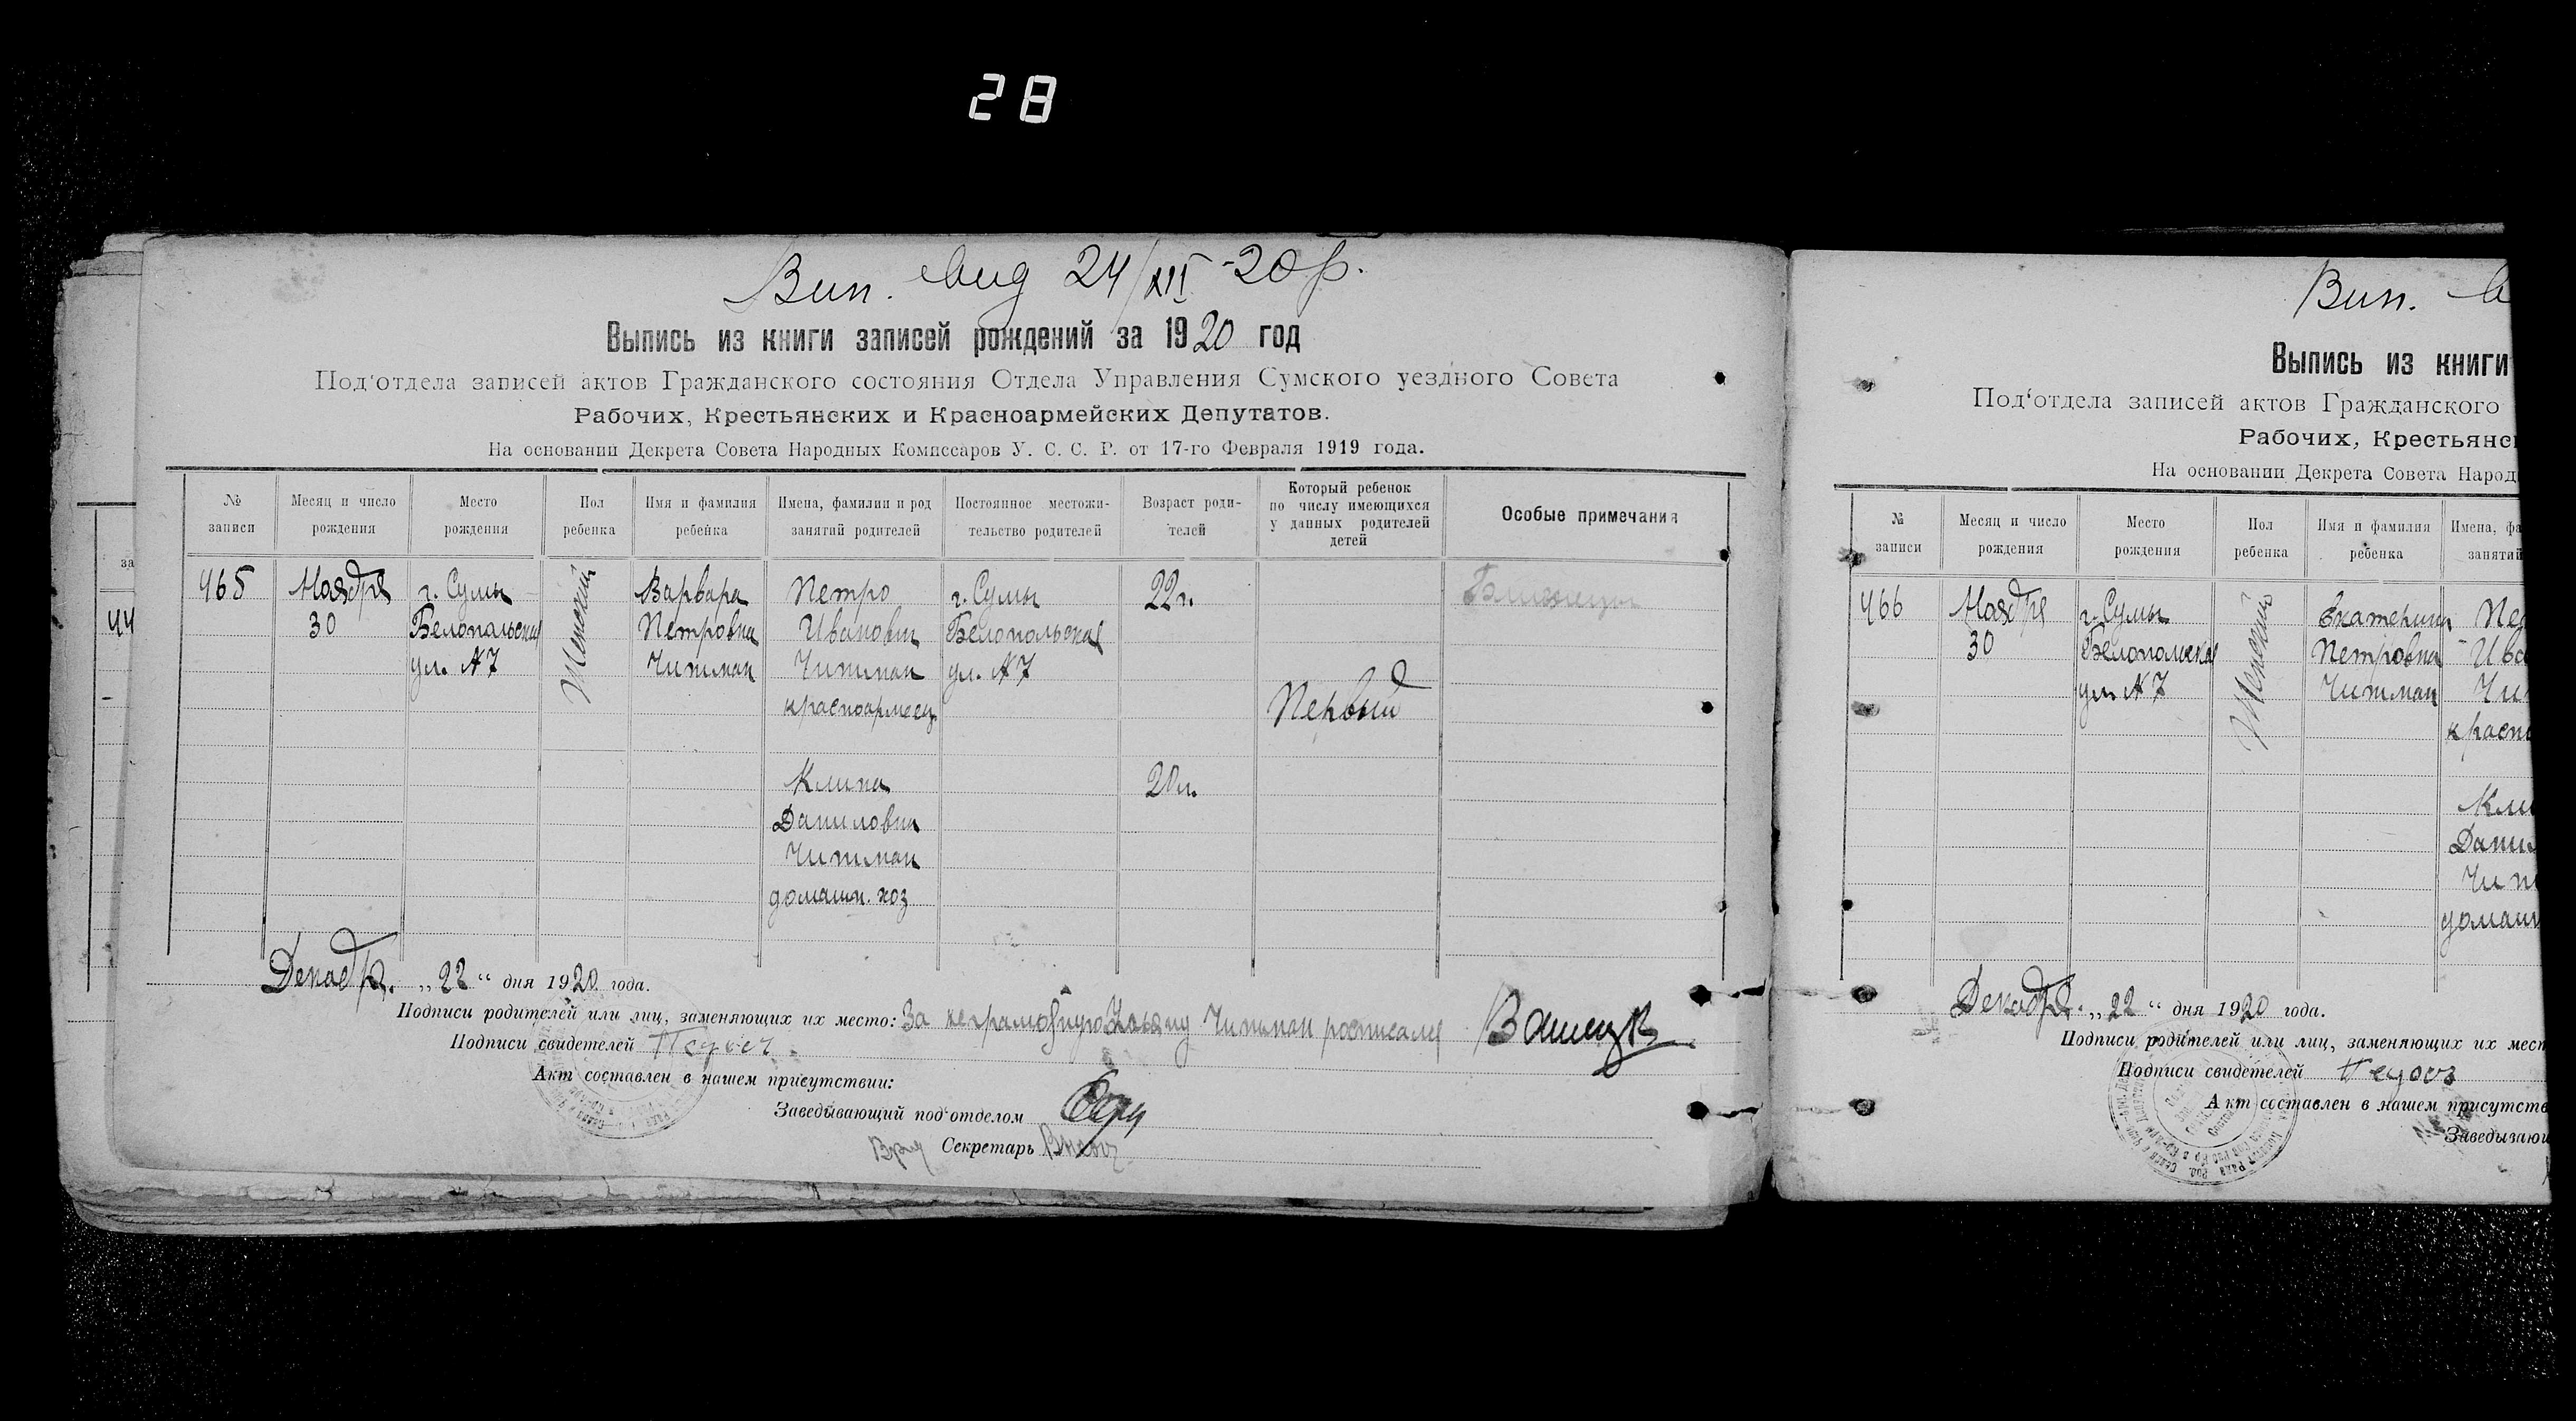 28
Вип. вид 24/XII-20 р.
Выпись из книги записей рождений за 1920 год
Под'отдела записей актов Гражданского состояния Отдела Управления Сумского уездного Совета
Рабочих, Крестьянских и Красноармейских Депутатов.
На основании Декрета Совета Народных Комиссаров У. С. С. Р. от 17-го Февраля 1919 года.
№ записи
Месяц и число рождения
Место рождения
Пол ребенка
Имя и фамилия ребенка
Имена, фамилии и род занятий родителей
Постоянное местожительство родителей
Возраст родителей
Который ребенок по числу имеющихся у данных родителей детей
Особые примечания
465
Ноября
30
г. Сумы
Белопольская
ул. №7
Женский
Варвара
Петровна
Читман
Петро
Иванович
Читман
красноармеец
Клина
Даниловна
Читман
домашн. хоз
г. Сумы
Белопольская
ул. №7
22 г.
20 л.
Первый
Близнецы
Декабр. „22“ дня 1920 года.
Подписи родителей или лиц, заменяющих их место: За неграмотную Читман
Подписи свидетелей
Акт составлен в нашем присутствии:
Заведывающий под'отделом
Врид Секретарь
за
44
Вип.
Выпись из книги
Под'отдела записей актов Гражданского
Рабочих, Крестьянс
На основании Декрета Совета Народ
№ записи
Месяц и число рождения
Место рождения
Пол ребенка
Имя и фамилия ребенка
Имена, фа
занятий
466
Ноября
30
г. Сумы
Белопольская
ул. №7
Женский
Екатерина
Петровна
Читман
Пет
Ива
Чит
красно
Кли
Дани
Чит
домашн
Декабр. „22“ дня 1920 года.
Подписи родителей или лиц, заменяющих их мест
Подписи свидетелей
Акт составлен в нашем присутств
Заведывающ